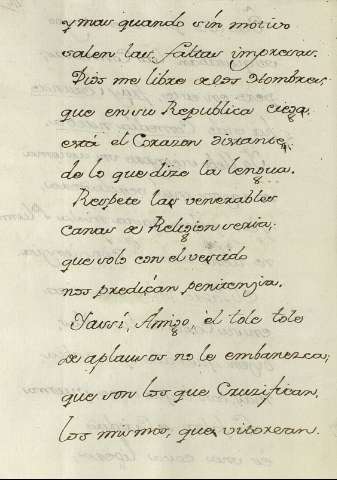 y mas quando sin motivo
salen las faltas impresas.
Dios me libre de los Hombres,
que en su Republica ciega
está el Corazon distante
de lo que dize la lengua.
Respete las venerables
canas de Religion seria,
que solo con el vestido
nos predican penitenzia.
Y assi, Amigo, el tole tole
de aplausos no le embanezca,
que son los que Cruzifican,
los mismos, que vitorean.